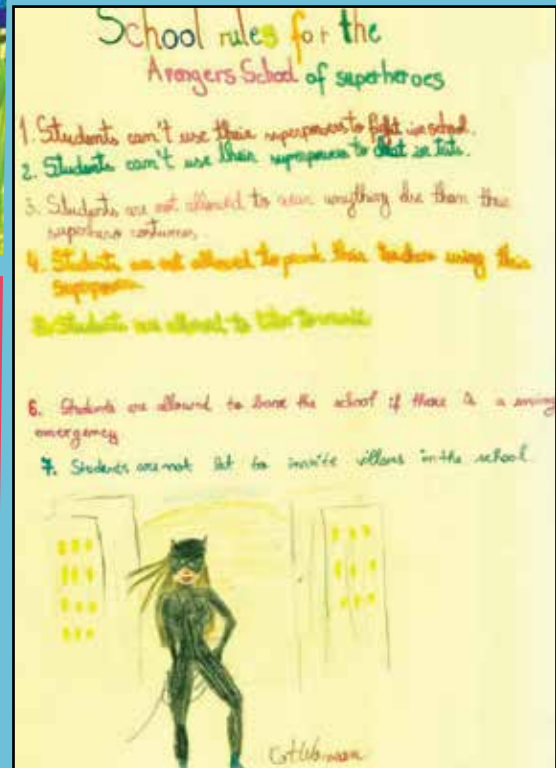 School rules for the
Avengers School of superheroes
1. Students can't use their superpowers to fight in school.
2. Students can't use their superpowers to cheat in tests.
3. Students are not allowed to wear anything else than their
superhero costumes.
4. Students are not allowed to prank their teachers using their
superpowers.
5. Students are allowed to listen to music
6. Students are allowed to leave the school if there is a
emergency
7. Students are not let to invite villans in the school.
CatWoman